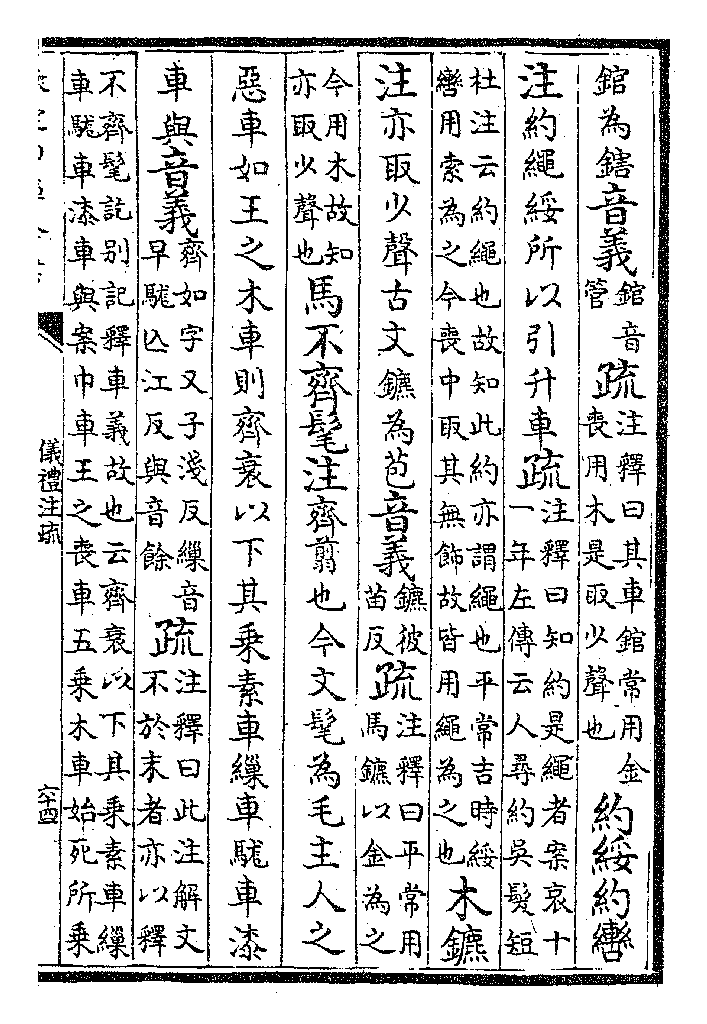 錧為鎋音義錧音管疏注釋曰其車錧常用金喪用木是取少聲也約綏約轡
注約繩綏所以引升車疏注釋曰知約是繩者案哀十一年左傳云人尋約吳髮短
杜注云約繩也故知此約亦謂繩也平常吉時綏轡用索為之今喪中取其無飾故皆用繩為之也木鑣
注亦取少聲古文鑣為苞音義鑣彼苗反疏注釋曰平常用馬鑣以金為之
今用木故知亦取少聲也馬不齊髦注齊翦也今文髦為毛主人之
惡車如王之木車則齊衰以下其乘素車繅車駹車漆
車與音義齊如字又子淺反繅音早駹亾江反與音餘疏注釋曰此注解文不於末者亦以釋
不齊髦訖别記釋車義故也云齊衰以下其乘素車繅車駹車漆車與案巾車王之喪車五乘木車始死所乘
儀禮注疏
六十四